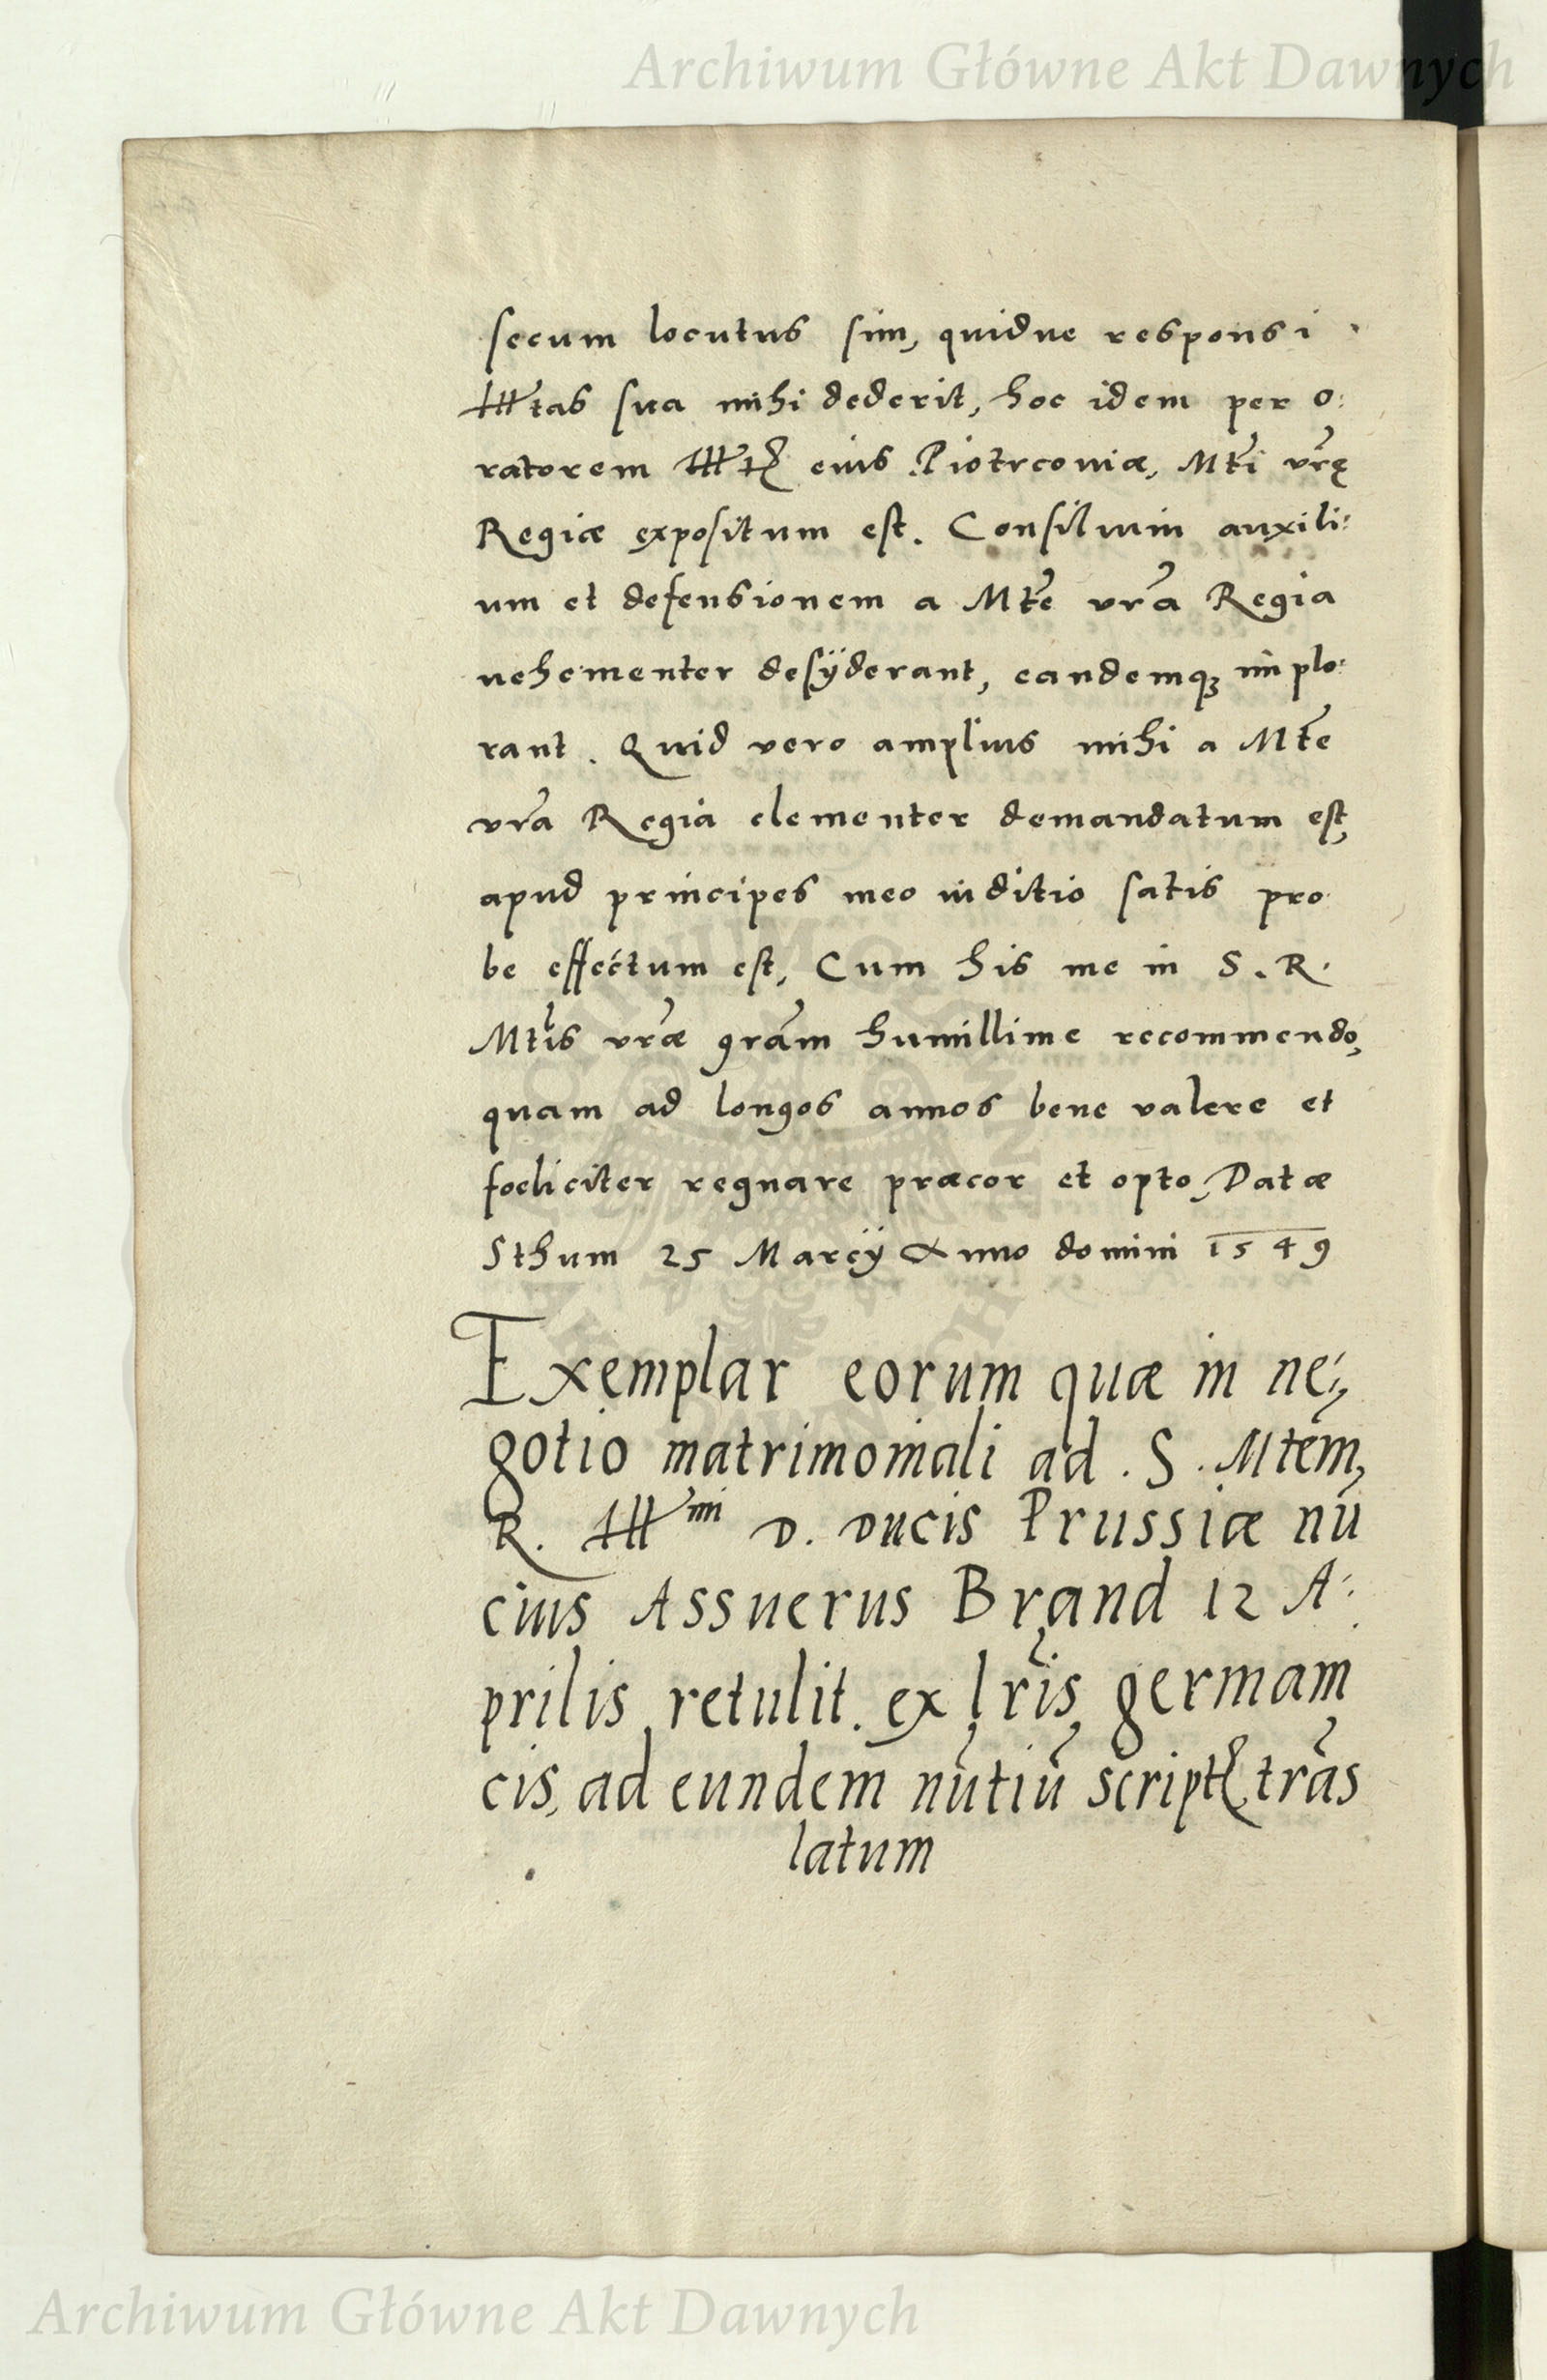 Archiwum Główne Akt Dawnych
secum locutus sim, quidue responsi
Illtas sua mihi dederit, hoc idem per o:
ratorem Illtis eius Piotrcoviæ, Mti vrę
Regiæ expositum est. Consilium auxili:
um et defensionem a Mte vra Regia
uehementer desÿderant, eandemqꝫ implo:
rant. Quid vero amplius mihi a Mte
vra Regia clementer demandatum est,
apud principes meo iuditio satis pro
be effectum est, Cum his me in S. R.
Mtis vræ gram humillime recommendo,
quam ad longos annos bene valere et
foeliciter regnare præcor et opto, Datæ
Sthum 25 Marcÿ Anno domini 1549
Exemplar eorum quæ in ne:,
gotio matrimoniali ad . S . Mtem,
R. Illmi D. Ducis Prussiæ nū
cius Assuerus Brand 12 A:
prilis retulit. ex lris germani
cis, ad eundem nūtiū script. trās
latum
Archiwum Główne Akt Dawnych